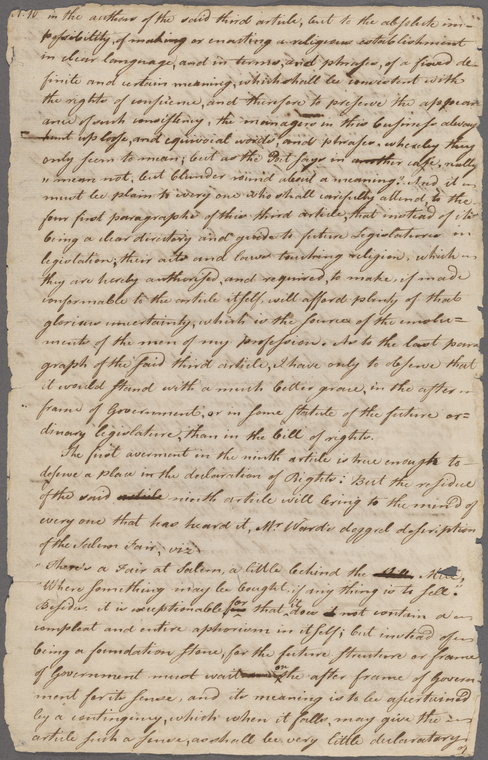 in the authors of the said third article, but to the absolute im-
possibility of making or enacting a religious establishment
in clear language, and in terms, and phrases, of a fixed de
finite and certain meaning, which shall be consistent with
the rights of consience, and therefore to preserve the appear
ance of such consistency, the managers in this business always
hunt up loose, and equivocal words, and phrases, whereby they
only seem to mean; but as the Poet says in another case, really
mean not, but blunder round about a meaning? And it
must be plain to every one who shall carefully attend, to the
four first paragraphs of this third article, that instead of it's
being a clear directory and guide to future Legislatures in
legislation, their acts and laws touching religion, which
they are hereby authorised, and required, to make, if made
conformable to the article itself will afford plenty of that
glorious uncertainty, which is the source of the emolu=
ments of the men of my profession. As to the last para
graph of the said third article, I have only to observe that
it would stand with a much better grace, in the after
frame of Government, or in some statute of the future or=
dinary legislature, than in the bill of rights.
The first averment in the ninth article is true enough to
deserve a place in the declaration of Rights: But the residue
of the said ninth article will bring to the mind of
every one that has heard it, Mr. Wards doggrel description
of the Salem Fair, viz
"There's a Fair at Salem, a little behind the
"Where something may be bought, if any thing is to sell."
Besides it is exceptionable for that it does not contain a
compleat and entire aphorism in itself; but instead of
being a foundation stone, for the future structure or frame
of Government must wait on the after frame of Govern
ment for its sense, and its meaning is to be ascertained
by a contingency, which when it falls, may give the
article such a sense, as shall be very little declaratory